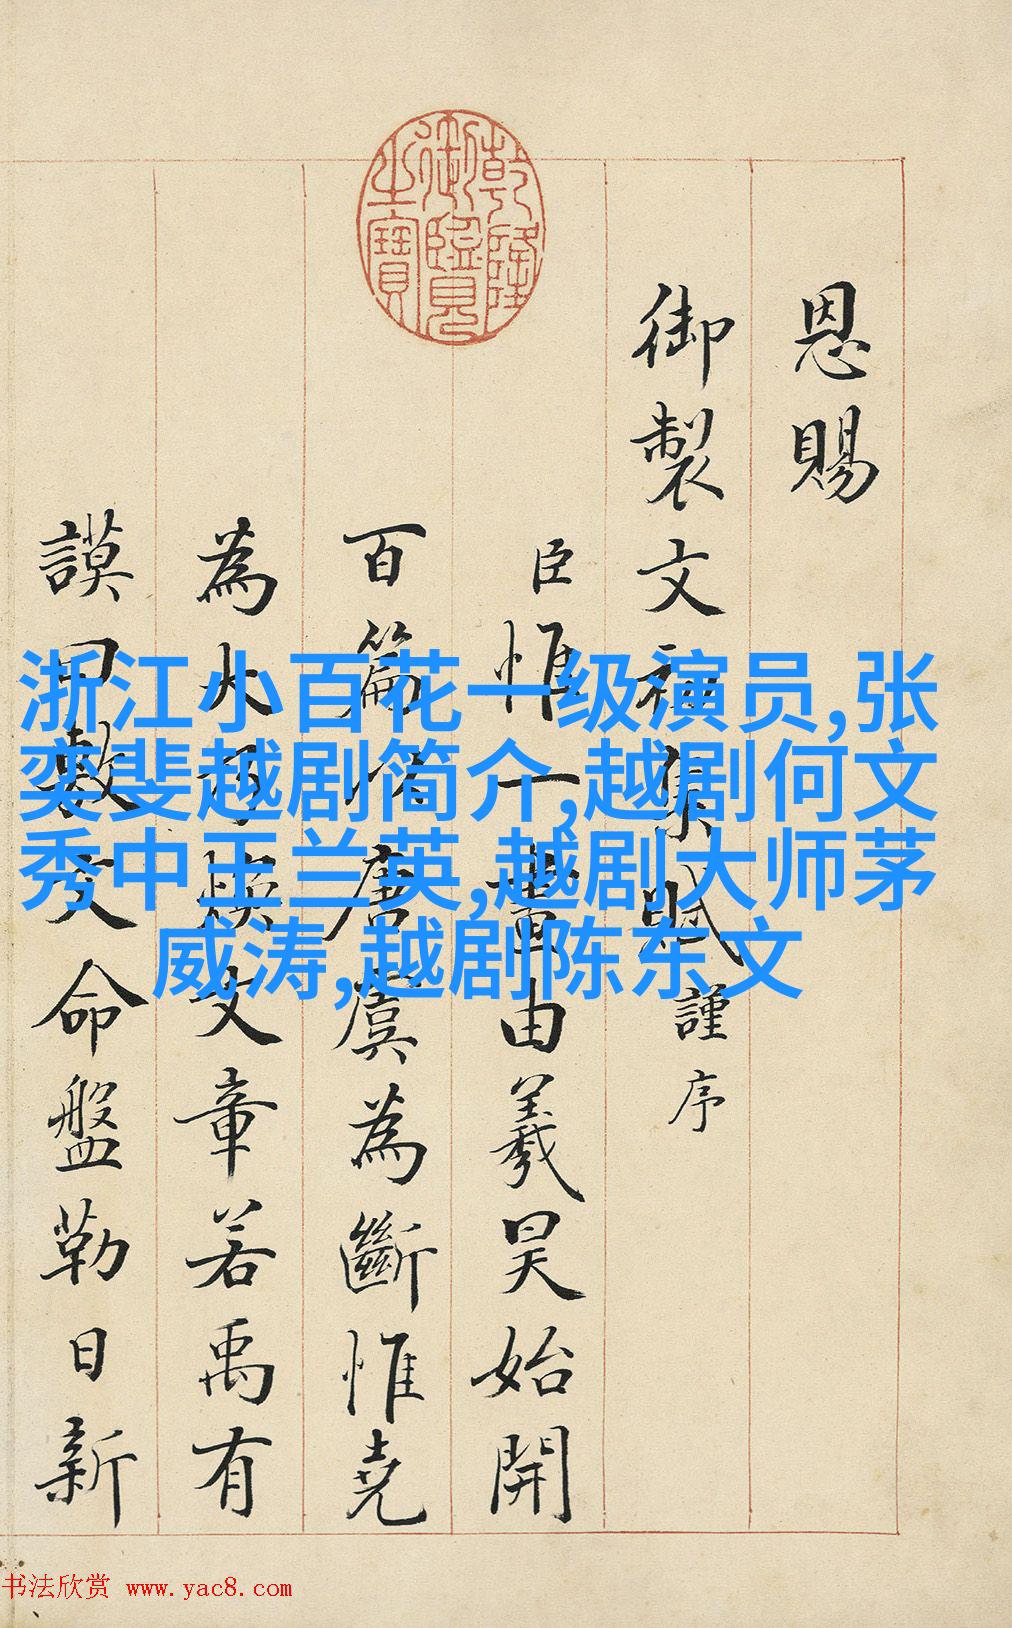 乾隆御覽之寶
恩賜
御製文初集賦謹序
臣惟一畫由羲昊始開
百篇以唐虞為斷惟堯
為大乃煥文章若禹有
謨曰敷文命盤勒日新
浙江小百花一级演员,张
奕斐越剧简介,越剧何文
秀中王兰英,越剧大师茅
威涛,越剧陈东文
书法欣赏 www.yac8.com